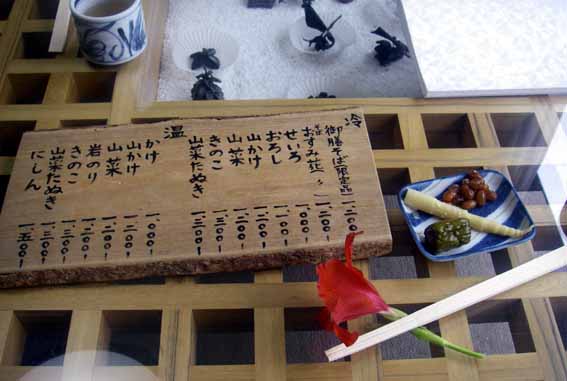 冷
御膳そば(限定品) 一、二〇〇-
せいろ 一、〇〇〇-
おろし 一、二〇〇-
山かけ 一、二〇〇-
山菜 一、二〇〇-
きのこ 一、二〇〇-
山菜たぬき 一、三〇〇-
温
かけ 一、〇〇〇-
山かけ 一、二〇〇-
山菜 一、二〇〇-
岩のり 一、二〇〇-
きのこ 一、二〇〇-
山菜たぬき 一、三〇〇-
にしん 一、五〇〇-